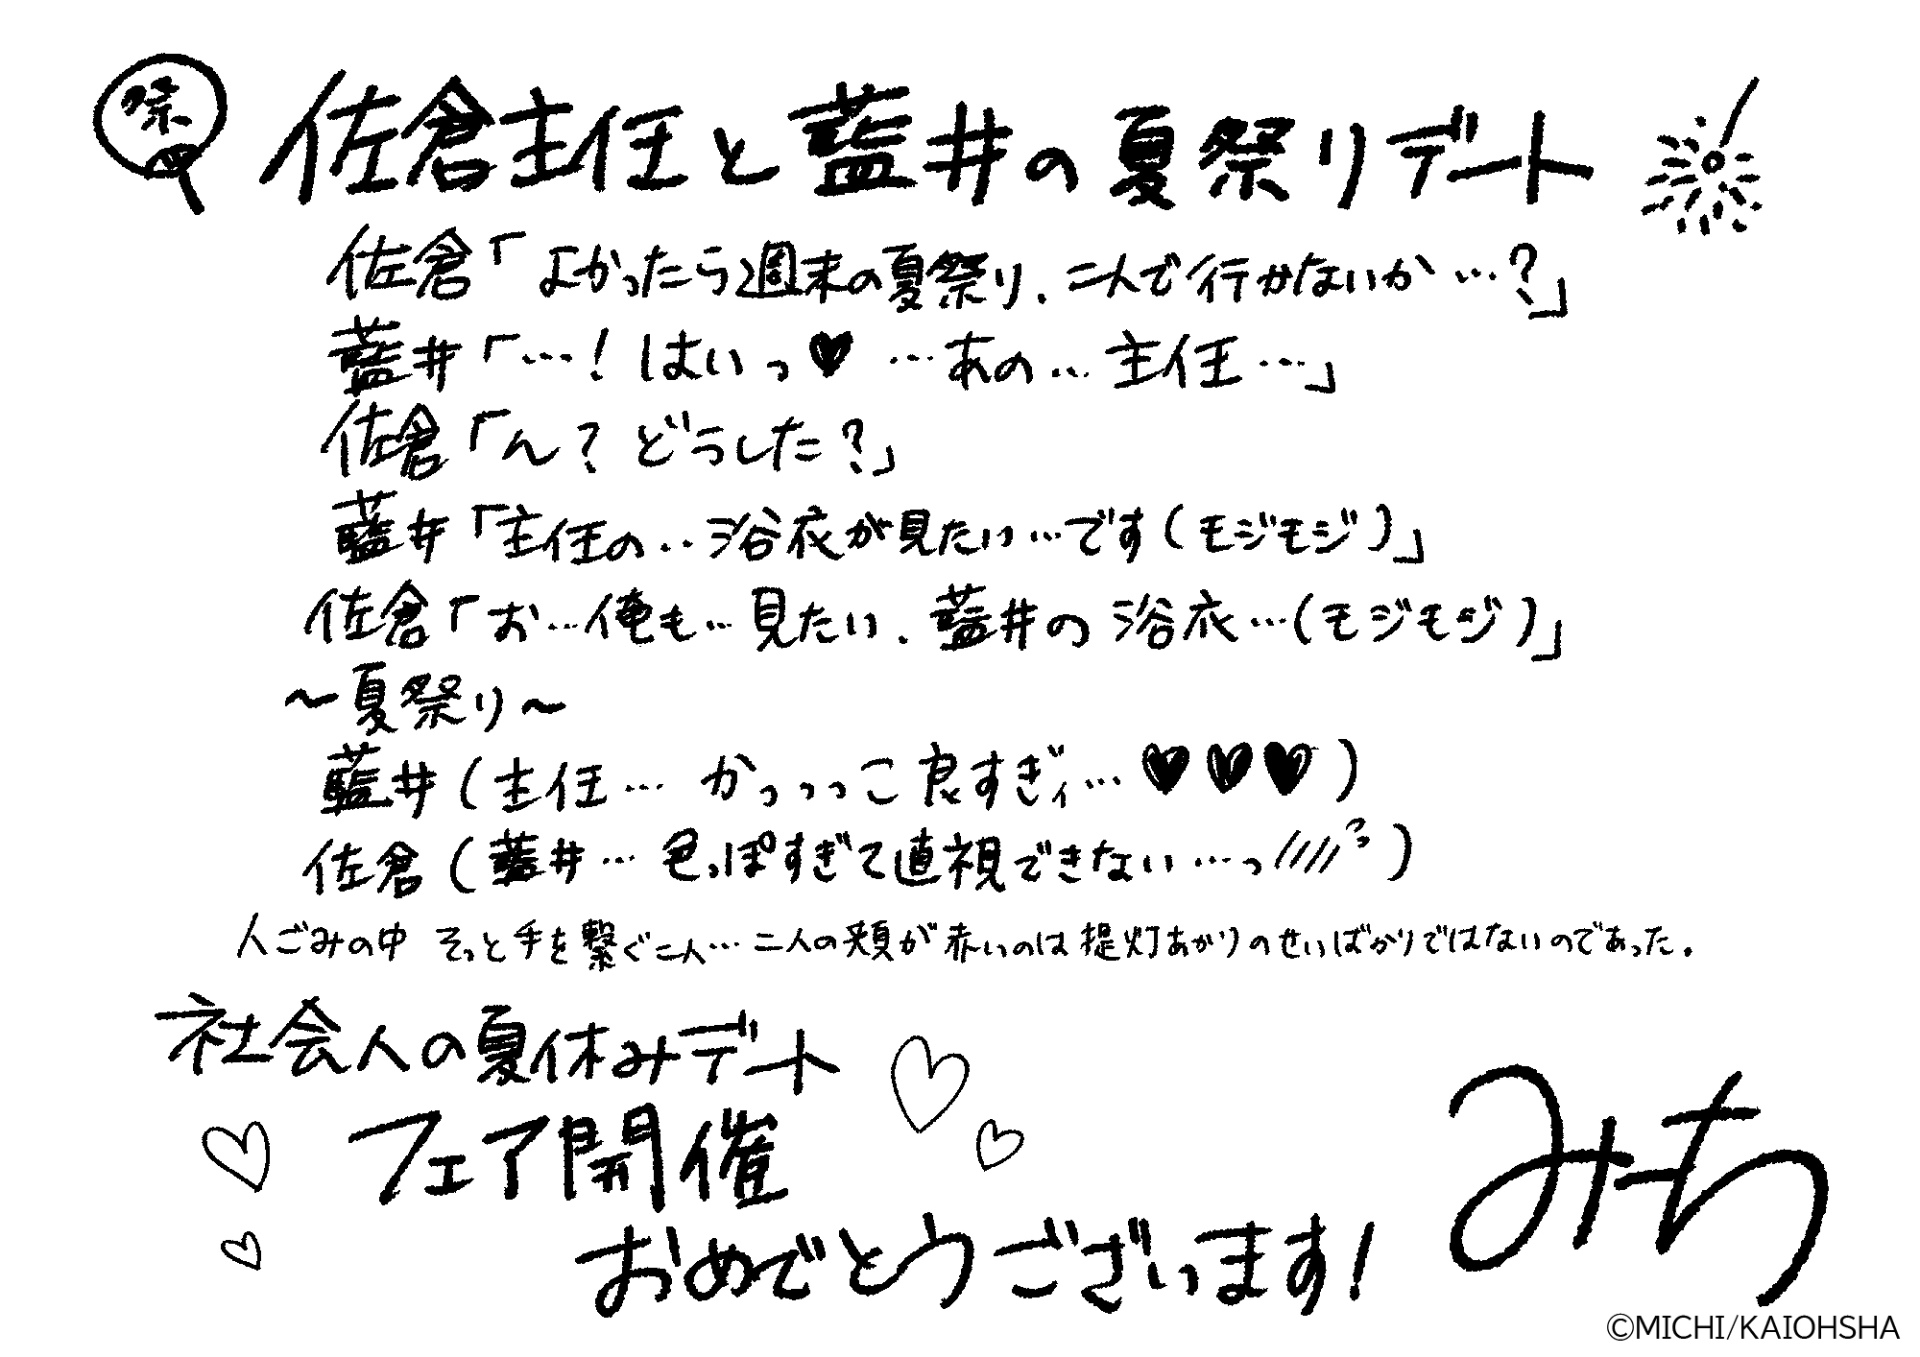 祭
佐倉主任と藍井の夏祭りデート
佐倉「よかったら週末の夏祭り、二人で行かないか…?」
藍井「…!はいっ♥ …あの…主任…」
佐倉「ん? どうした?」
藍井「主任の…浴衣が見たい…です(モジモジ)」
佐倉「お…俺も…見たい、藍井の浴衣…(モジモジ)」
~夏祭り~
藍井(主任… かっっっこ良すぎィ…♥♥♥)
佐倉(藍井…色っぽすぎて直視できない…っ////)
人ごみの中 そっと手を繋ぐ二人…二人の頬が赤いのは提灯あかりのせいばかりではないのであった。
社会人の夏休みデート
フェア開催
おめでとうございます!
みーち
©MICHI/KAIOHSHA